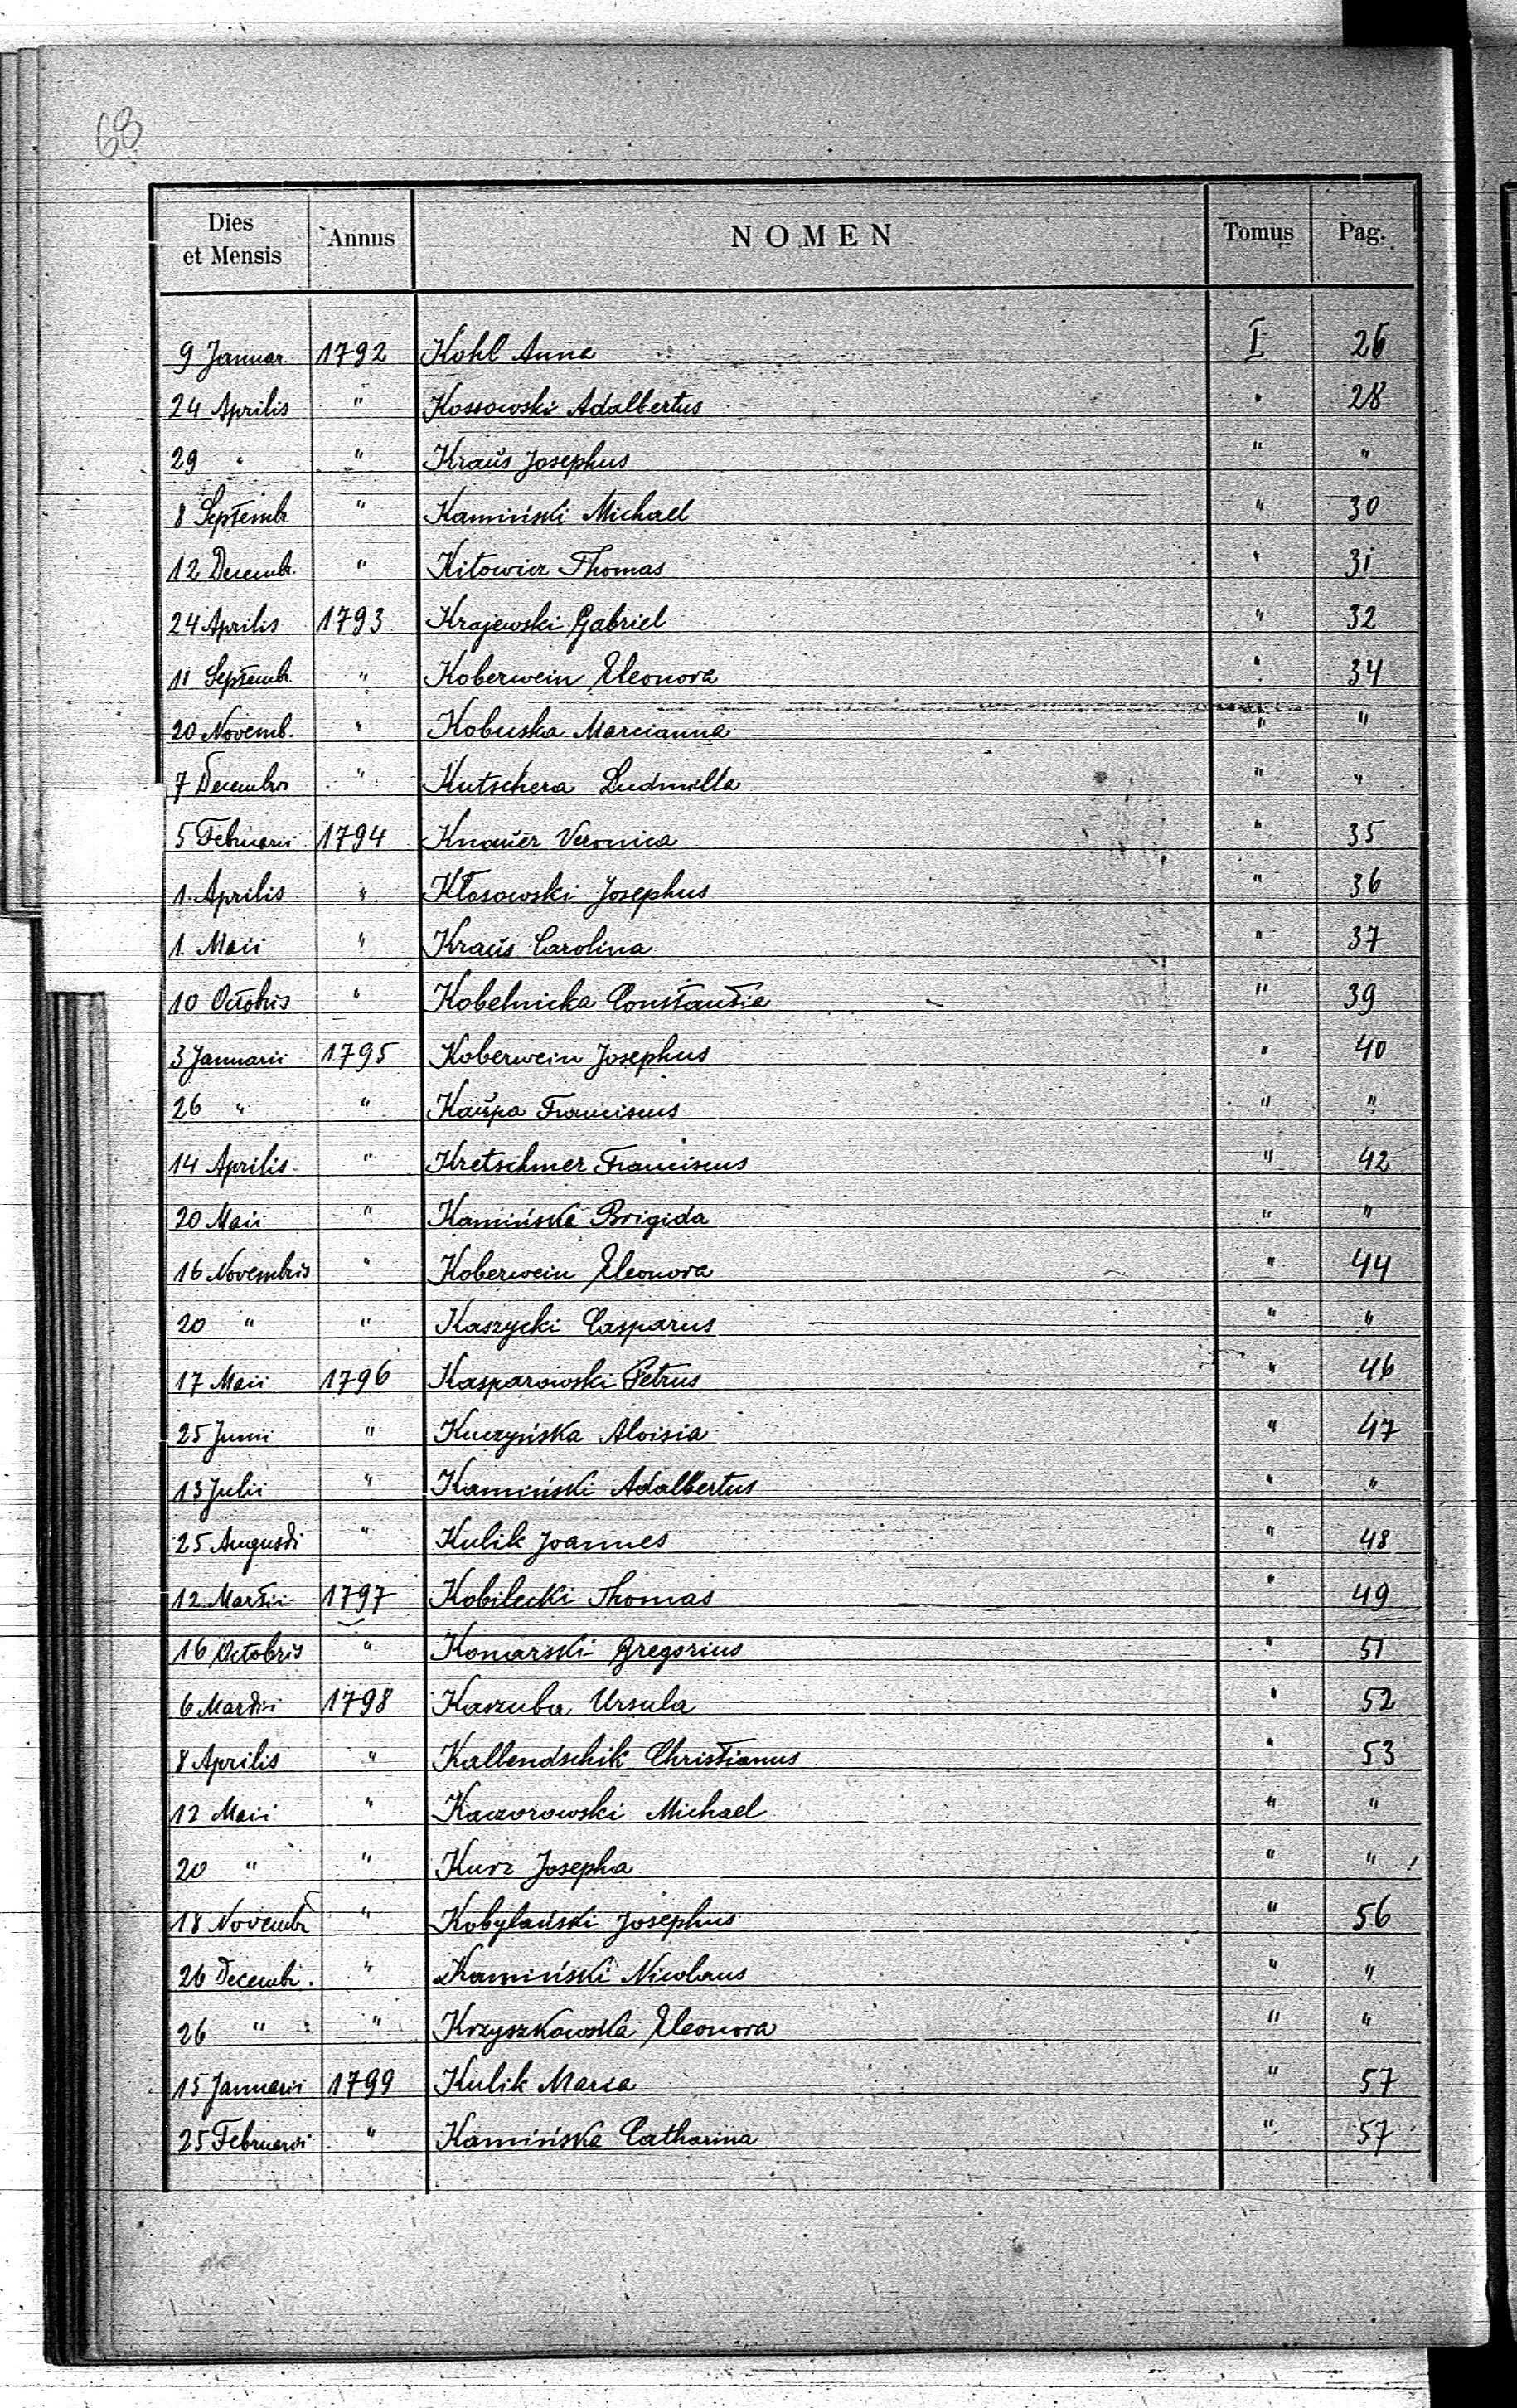 68
Dies et Mensis Annus NOMEN Tomus Pag.
9 Januar. 1792 Kohl Anna I 26
24 Aprilis " Kossowski Adalbertus " 28
29 " " Kraŭs Josephus " "
8 Septembr " Kamiński Michael " 30
12 Decembr. " Kitowicz Thomas " 31
24 Aprilis 1793 Krajewski Gabriel " 32
11 Septembr. " Koberwein Eleonora " 34
20 Novemb. " Kobuska Marcianna " "
7 Decembris " Kutschera Ludmilla " "
5 Februarii 1794 Knaŭer Veronica " 35
1. Aprilis " Kłosowski Josephus " 36
1. Maii " Kraŭs Carolina " 37
10 Octobris " Kobelnicka Constantia " 39
3 Januarii 1795 Koberwein Josephus " 40
26 " " Kaŭpa Franciscus " "
14 Aprilis " Kretschmer Franciscus " 42
20 Maii " Kamińska Brigida " "
16 Novembris " Koberwein Eleonora " 44
20 " " Kaszycki Casparus " "
17 Maii 1796 Kasparowski Petrus " 46
25 Junii " Kuczyńska Aloisia " 47
13 Julii " Kamiński Adalbertus " "
25 Augusti " Kulik Joannes " 48
12 Martii 1797 Kobilecki Thomas " 49
16 Octobris " Komarski Gregorius " 51
6 Martii 1798 Kaszuba Ursula " 52
8 Aprilis " Kallendschik Christianus " 53
12 Maii " Kaczorowski Michael " "
20 " " Kurz Josepha " "
18 Novembr " Kobylański Josephus " 56
26 Decembr. " Kamiński Nicolaus " "
26 " " Krzyszkowska Eleonora " "
15 Januarii 1799 Kulik Maria " 57
25 Februarii " Kamińska Catharina " 57